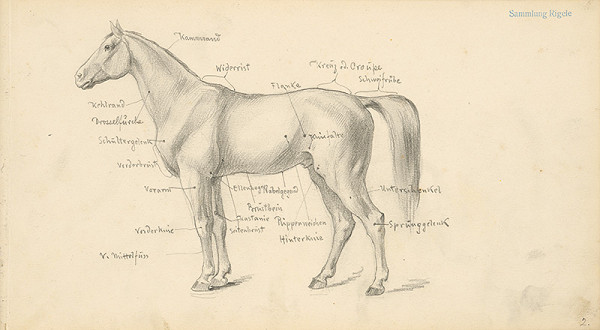 Sammlung Rigele
Kammrand
Widerrist
Kreuz od. Croupe
Schweifrübe
Flanke
Kehlrand
Drosselfurche
Schultergelenk
Kniefalte
Vorderbrust
Vorarm
Ellenbog
Nabelgegend
Unterschenkel
Brustbein
Kastanie
Rippenweichen
Sprunggelenk
Vorderknie
Seitenbrust
Hinterknie
V. Mittelfuss
2.